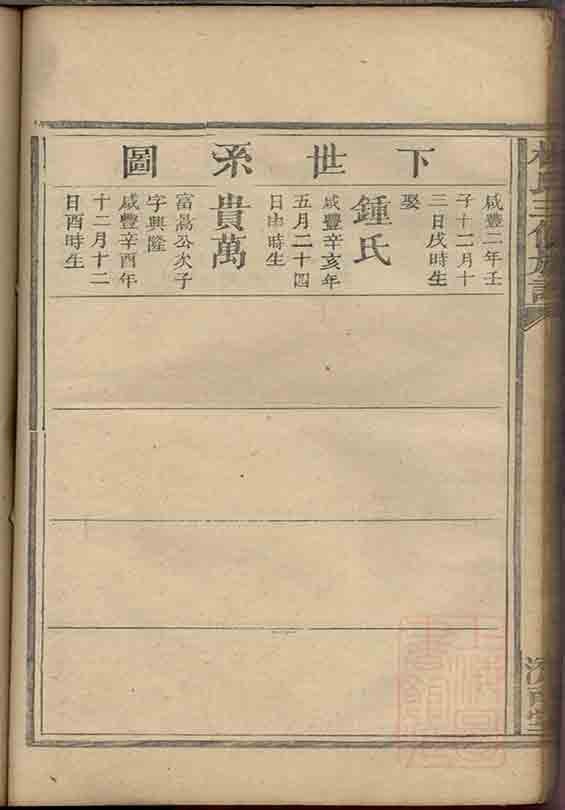 氏三修族譜
濟南堂
下世系圖
咸豐二年壬
子十二月十
三日戌時生
娶
鍾氏
咸豐辛亥年
五月二十四
日申時生
貴萬
富暠公次子
字興隆
咸豐辛酉年
十二月十二
日酉時生
上海圖書館藏